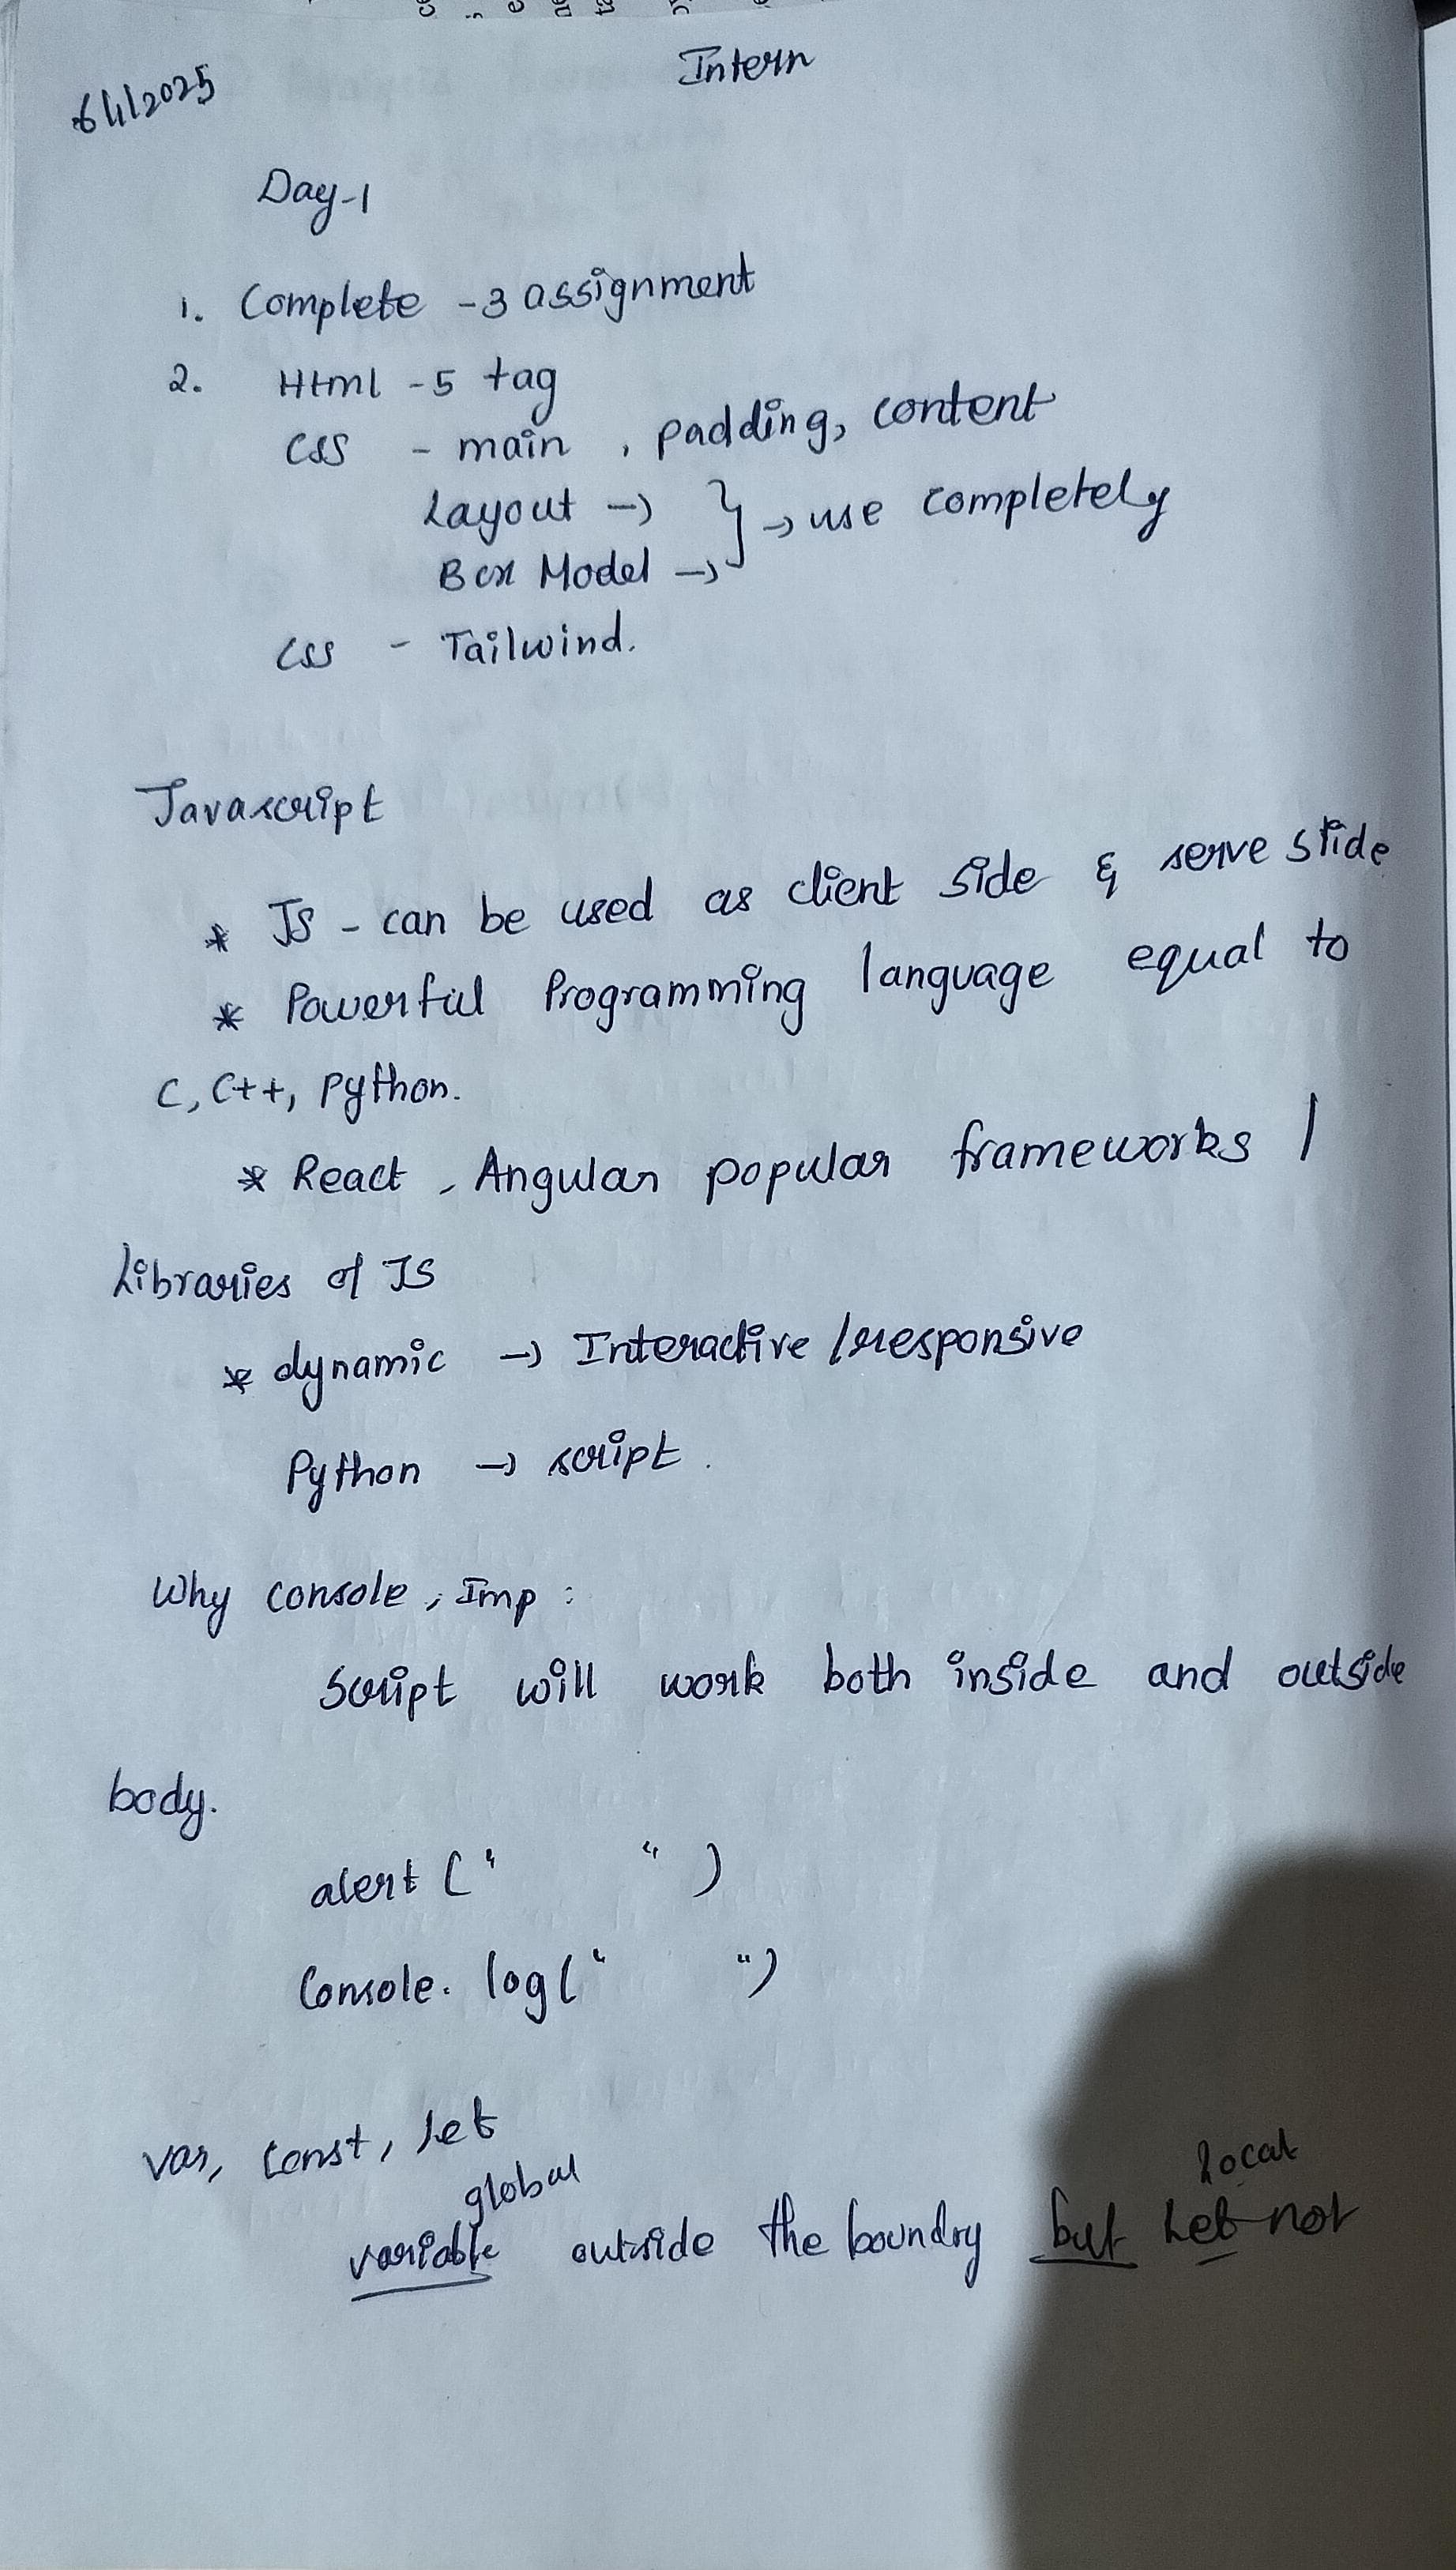 Intern
6/1/2025
Day-1
1. Complete -3 assignment
2. Html -5 tag
CSS - main, padding, content
Layout →
Box Model → } → use completely
CSS - Tailwind.
Javascript
* JS - can be used as client side & serve slide
* Powerful Programming language equal to
C, C++, Python.
* React, Angular popular frameworks /
Libraries of JS
* dynamic → Interactive / responsive
Python → script.
Why console, Imp :
Script will work both inside and outside
body.
alert (" ")
Console. log(" ")
var, const, Let
global local
variable outside the boundry but Let not